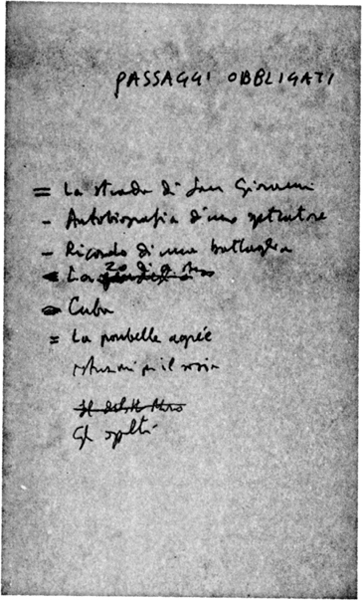 PASSAGGI OBBLIGATI
= La strada di San Giovanni
- Autobiografia d'uno spettatore
- Ricordo di una battaglia
La
Cuba
= La poubelle agréée
istruzioni per il sosia
Gli